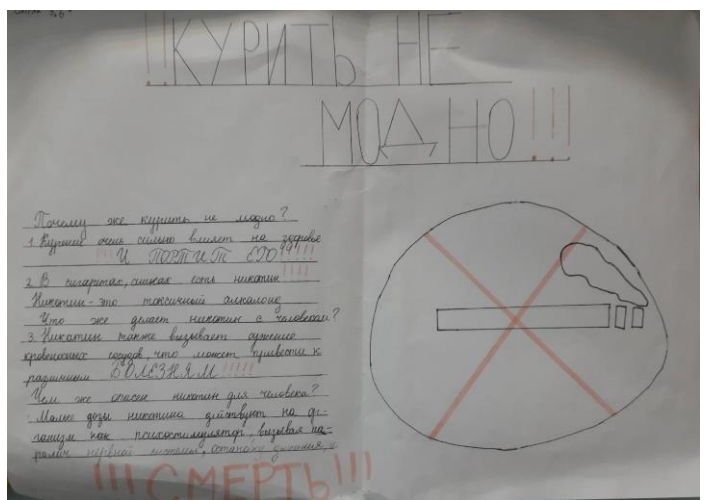 !!КУРИТЬ НЕ
МОДНО!!!
Почему же курить не модно?
1. Курение очень сильно влияет на здоровье
!!! И ПОРТИТ ЕГО!!!!!
2. В сигаретах, есть никотин!!!!
Никотин - это токсичный алкалоид
Что же делает никотин с человеком?
3. Никотин также вызывает сужение
кровеносных сосудов, что может привести к
различным БОЛЕЗНЯМ!!!!!
Чем же опасен никотин для человека?
Малые дозы никотина действуют на ор-
ганизм как психостимулятор, вызывая па-
ралич нервной системы, остановку дыхания,
!!!СМЕРТЬ!!!